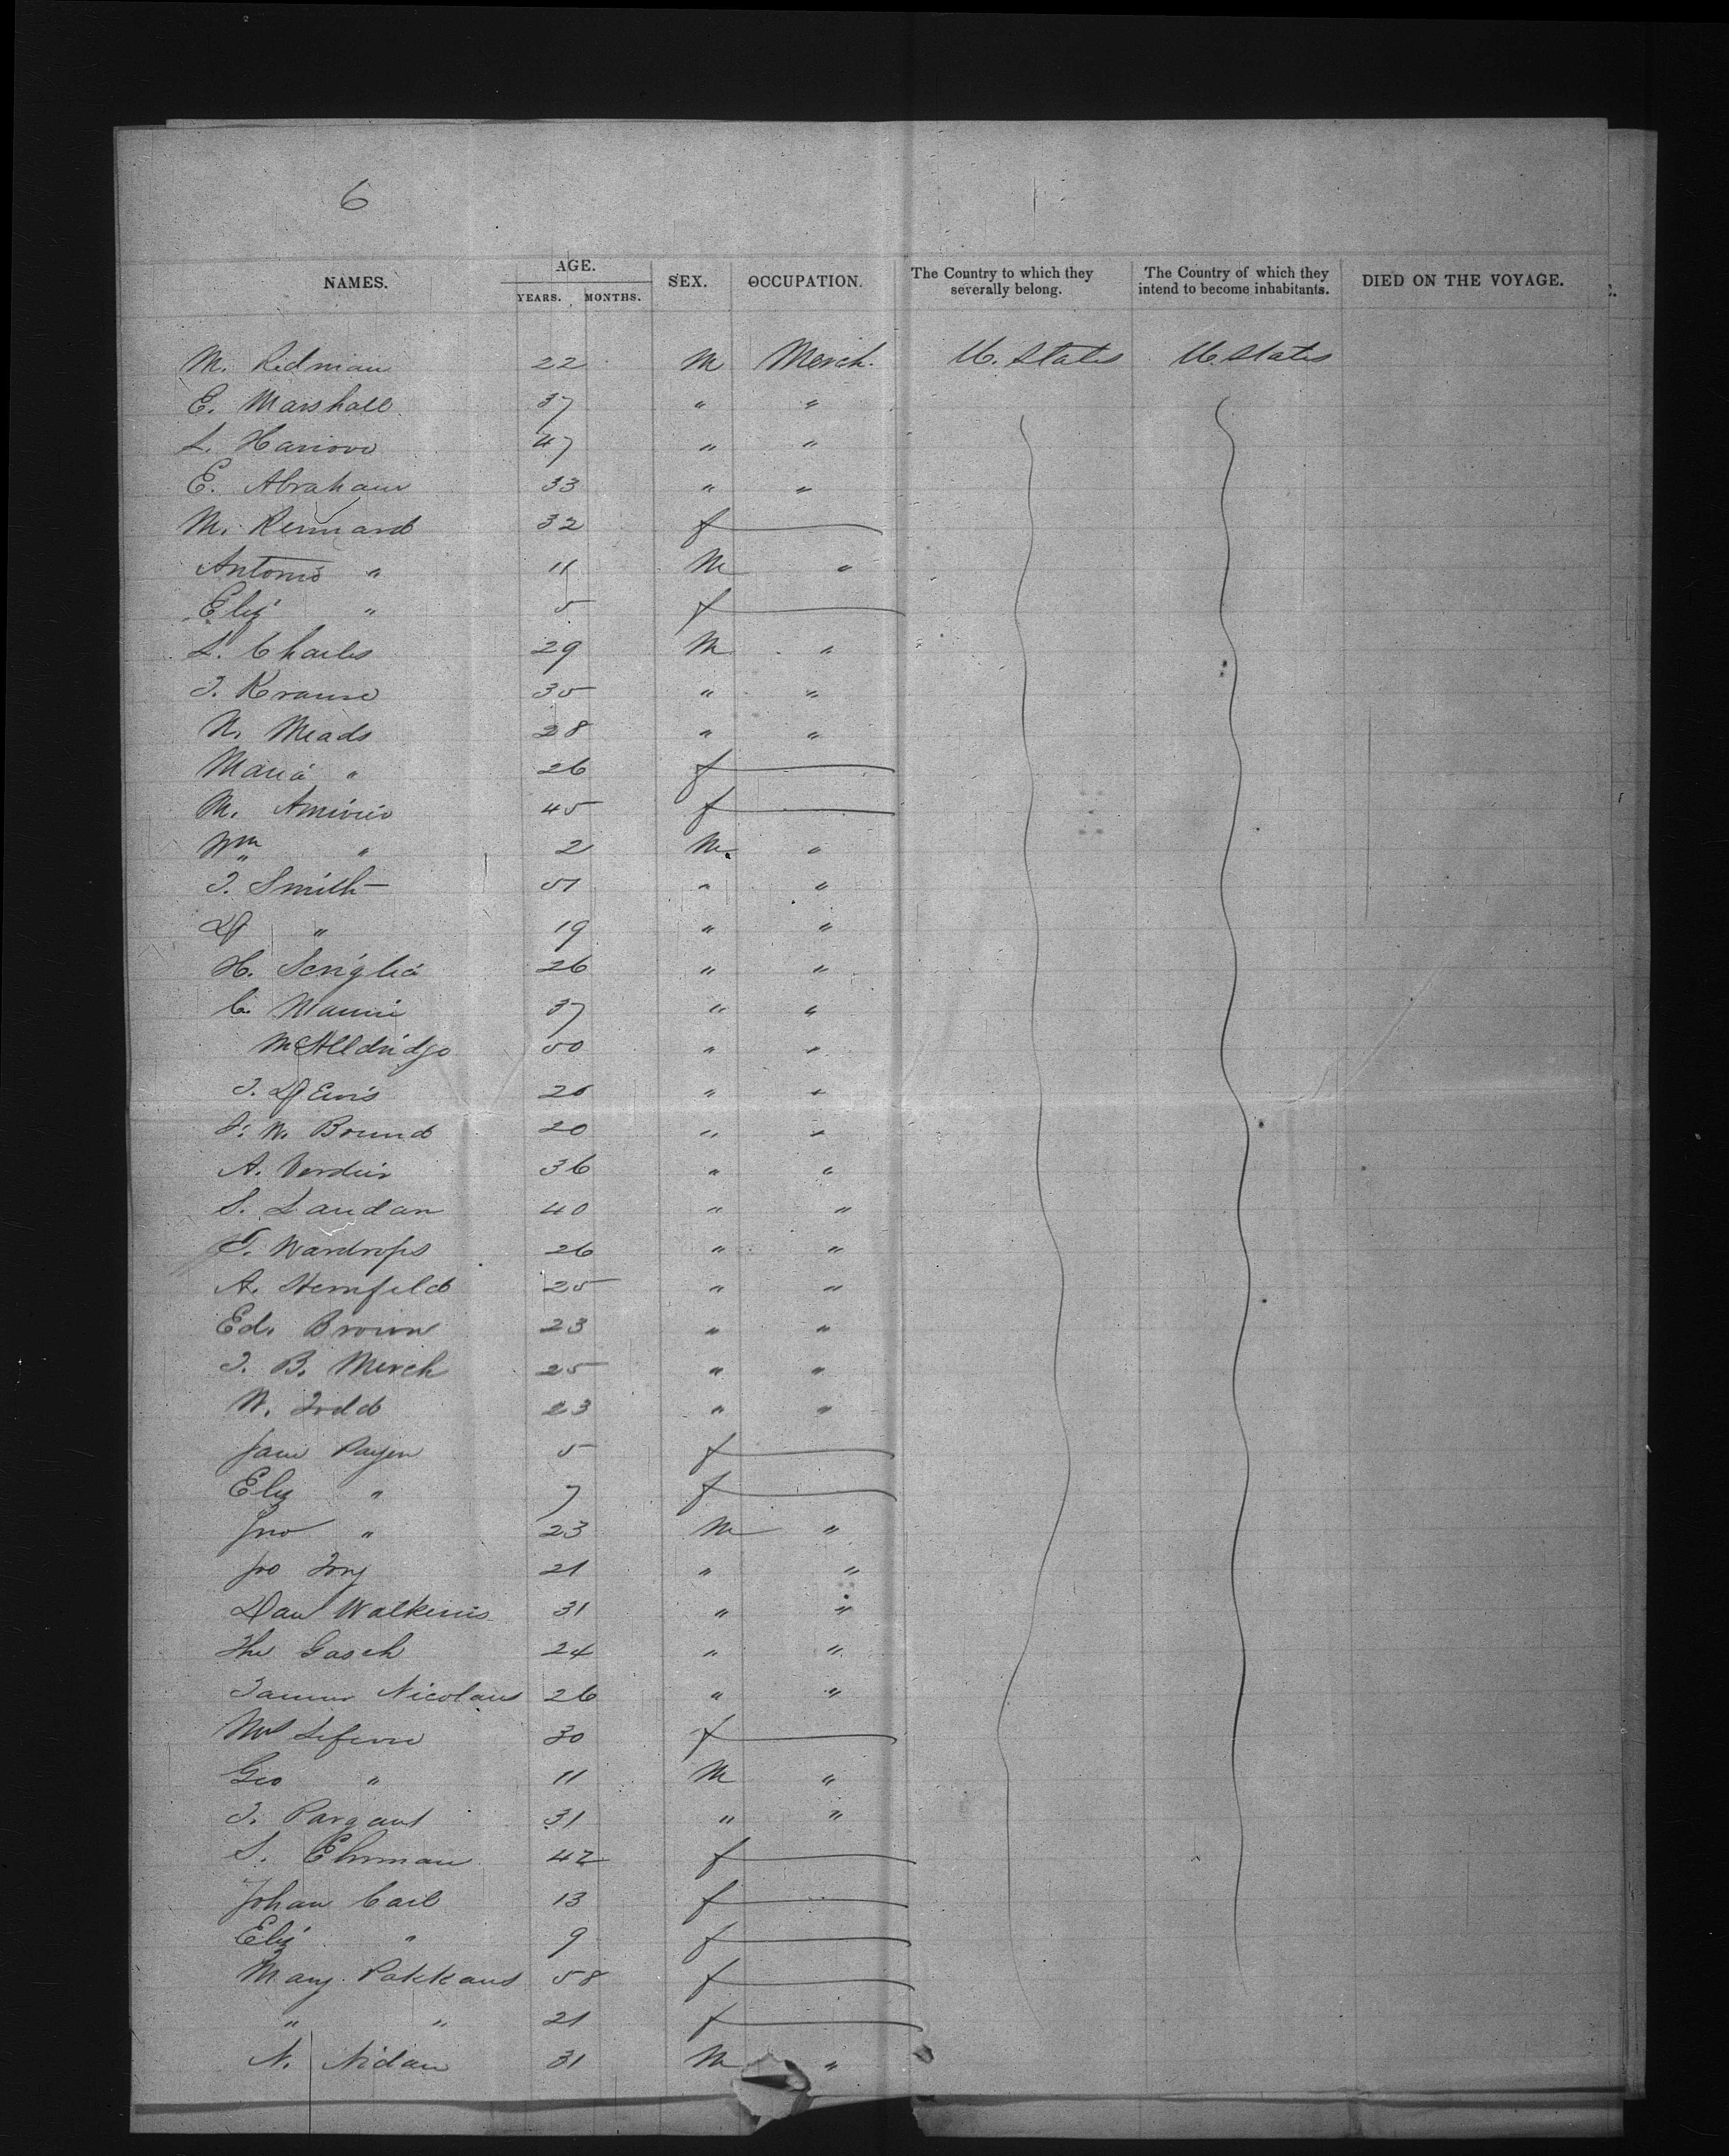 6
NAMES. AGE. SEX. OCCUPATION. The Country to which they severally belong. The Country of which they intend to become inhabitants. DIED ON THE VOYAGE.
YEARS. MONTHS.
M. Redman 22 M Merch. U. States U. States
E. Marshall 37 " "
L. 47 " "
E. Abraham 33 " "
M. 32 f
Antonio " 11 M "
Eliz " 5 f
L. Charles 29 M "
J. Krause 35 " "
N. Meads 28 " "
Maria " 26 f
M. 45 f
Wm " 2 M. "
J. Smith 51 " "
D " 19 " "
H. 26 " "
C. 37 " "
50 " "
J. 26 " "
W. Bround 20 " "
A. Verdier 36 " "
S. Landan 40 " "
T. Wardrops 26 " "
A. Sternfeld 25 " "
Ed. Brown 23 " "
J. B. Merch 25 " "
W. Todd 23 " "
Jane Payen 5 f
Eliz " 7 f
Jno " 23 M "
21 " "
Dan Walkins 31 " "
Gasch 24 " "
Nicolaus 26 " "
Mrs Lefevre 30 f
Geo " 11 M "
J. 31 " "
S. Ehrman 42 f
Johan Carl 13 f
Eliz " 9 f
Mary 58 f
" " 21 f
N. Nidan 31 M "